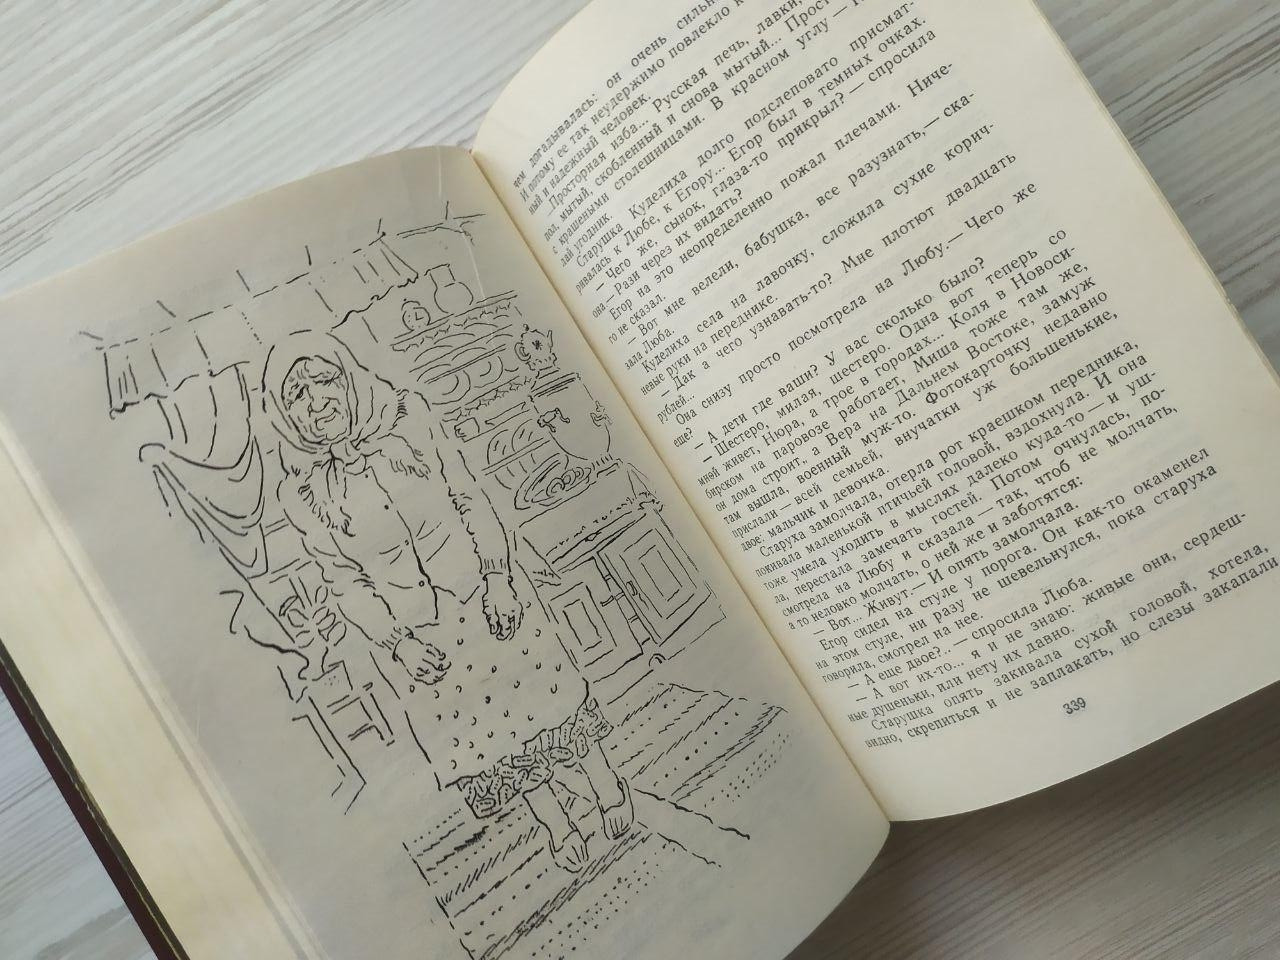 чем догадывалась: он очень сильн
И потому ее так неудержимо повлекло к
ный и надежный человек.
Просторная изба... Русская печь, лавки,
пол, мытый, скобленный и снова мытый... Прост
с крашеными столешницами. В красном углу — Н
лай угодник.
Старушка Куделиха долго подслеповато присмат-
ривалась к Любе, к Егору... Егор был в темных очках.
— Чего же, сынок, глаза-то прикрыл? — спросила
она.— Рази через их видать?
Егор на это неопределенно пожал плечами. Ниче-
го не сказал.
— Вот мне велели, бабушка, все разузнать,— ска-
зала Люба.
Куделиха села на лавочку, сложила сухие корич-
невые руки на переднике.
— Дак а чего узнавать-то? Мне плотют двадцать
рублей...
Она снизу просто посмотрела на Любу.— Чего же
еще?
— А дети где ваши? У вас сколько было?
— Шестеро, милая, шестеро. Одна вот теперь со
мной живет, Нюра, а трое в городах... Коля в Новоси-
бирском на паровозе работает, Миша тоже там же,
он дома строит, а Вера на Дальнем Востоке, замуж
там вышла, военный муж-то. Фотокарточку недавно
прислали — всей семьей, внучатки уж большенькие,
двое: мальчик и девочка.
Старуха замолчала, отерла рот краешком передника,
покивала маленькой птичьей головой, вздохнула. И она
тоже умела уходить в мыслях далеко куда-то — и уш-
ла, перестала замечать гостей. Потом очнулась, по-
смотрела на Любу и сказала — так, чтоб не молчать,
а то неловко молчать, о ней же и заботятся:
— Вот... Живут.— И опять замолчала.
Егор сидел на стуле у порога. Он как-то окаменел
на этом стуле, ни разу не шевельнулся, пока старуха
говорила, смотрел на нее.
— А еще двое?..— спросила Люба.
— А вот их-то... я и не знаю: живые они, сердеш-
ные душеньки, или нету их давно.
Старушка опять закивала сухой головой, хотела,
видно, скрепиться и не заплакать, но слезы закапали
339